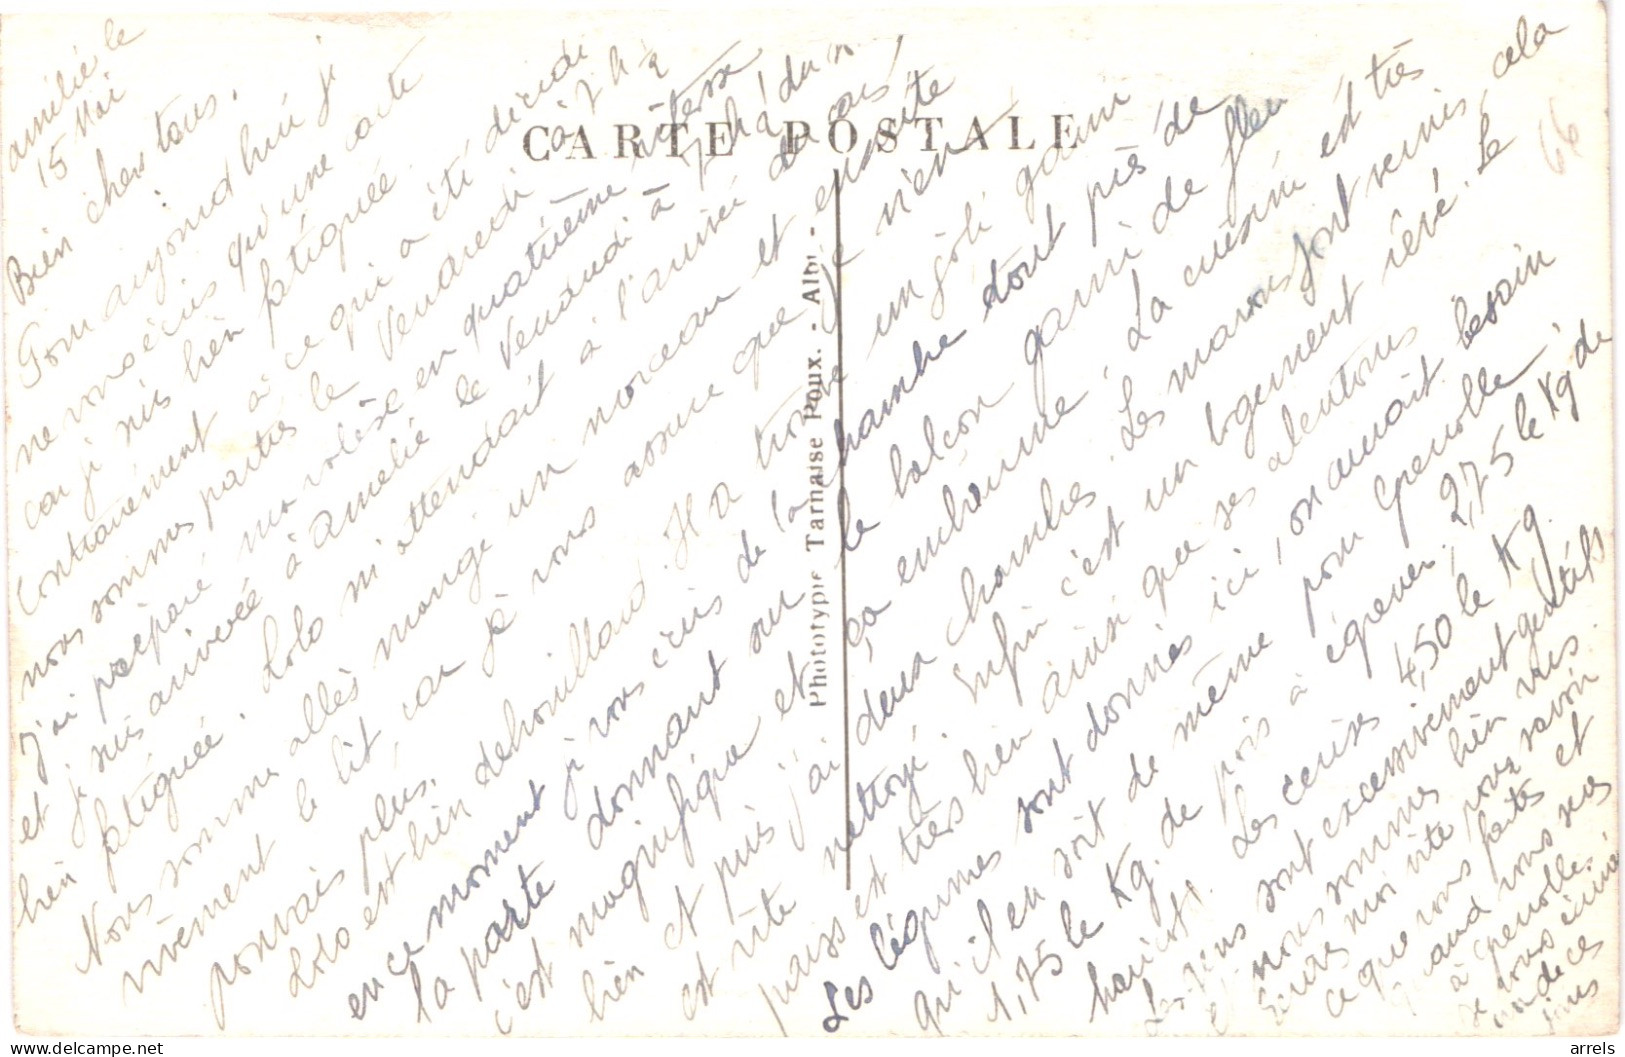 CARTE POSTALE
Phototypie Tarnaise Poux. - Albi. -
66
amélie le
15 Mai
Bien cher tous.
Pour aujourd'hui je
ne vous écris qu'une carte
car je suis bien fatiguée.
Contrairement à ce qui a été décidé
nous sommes parties le Vendredi à 7h ½
j'ai préparé ma valise en quatrième vitesse
et je suis arrivée à amélie le Vendredi à 7h du
bien fatiguée. Lolo m'attendait à l'arrivée du car
Nous sommes allés mangé un morceau et ensuite
vivement le lit, car je vous assure que je n'en
pouvais plus.
Lolo est bien débrouillard. Il a trouvé un joli
en ce moment je vous écris de la chambre dont
la porte donnant sur le balcon garni de fleur
c'est magnifique et ça embaume! La cuisine est très
bien et puis j'ai deux chambres. Les murs sont vernis, cela
est vite nettoyé. Enfin c'est un logement rêvé. Le
pays est très bien ainsi que ses alentours
Les légumes sont donnés ici, on aurait besoin
qu'il en soit de même pour Grenoble
1,75 le Kg. de pois à égrener, 2,75 le Kg de
haricots. Les cerises 4,50 le Kg.
Les gens sont excessivement gentils
et nous sommes bien vus.
Ecrivez moi vite pour savoir
ce que vous faites et
quand vous
à Grenoble.